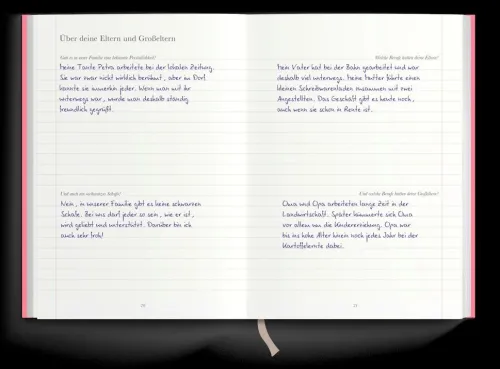 Über deine Eltern und Großeltern
Gab es in eurer Familie eine bekannte Persönlichkeit?
Meine Tante Petra arbeitete bei der lokalen Zeitung.
Sie war zwar nicht wirklich berühmt, aber im Dorf
kannte sie immerhin jeder. Wenn man mit ihr
unterwegs war, wurde man deshalb ständig
freundlich gegrüßt.
Und auch ein schwarzes Schaf?
Nein, in unserer Familie gibt es keine schwarzen
Schafe. Bei uns darf jeder so sein, wie er ist,
wird geliebt und unterstützt. Darüber bin ich
auch sehr froh!
10
Welche Berufe hatten deine Eltern?
Mein Vater hat bei der Bahn gearbeitet und war
deshalb viel unterwegs. Meine Mutter führte einen
kleinen Schreibwarenladen zusammen mit zwei
Angestellten. Das Geschäft gibt es heute noch,
auch wenn sie schon in Rente ist.
Und welche Berufe hatten deine Großeltern?
Oma und Opa arbeiteten lange Zeit in der
Landwirtschaft. Später kümmerte sich Oma
vor allem um die Kindererziehung. Opa war
bis ins hohe Alter hinein noch jedes Jahr bei der
Kartoffelernte dabei.
11